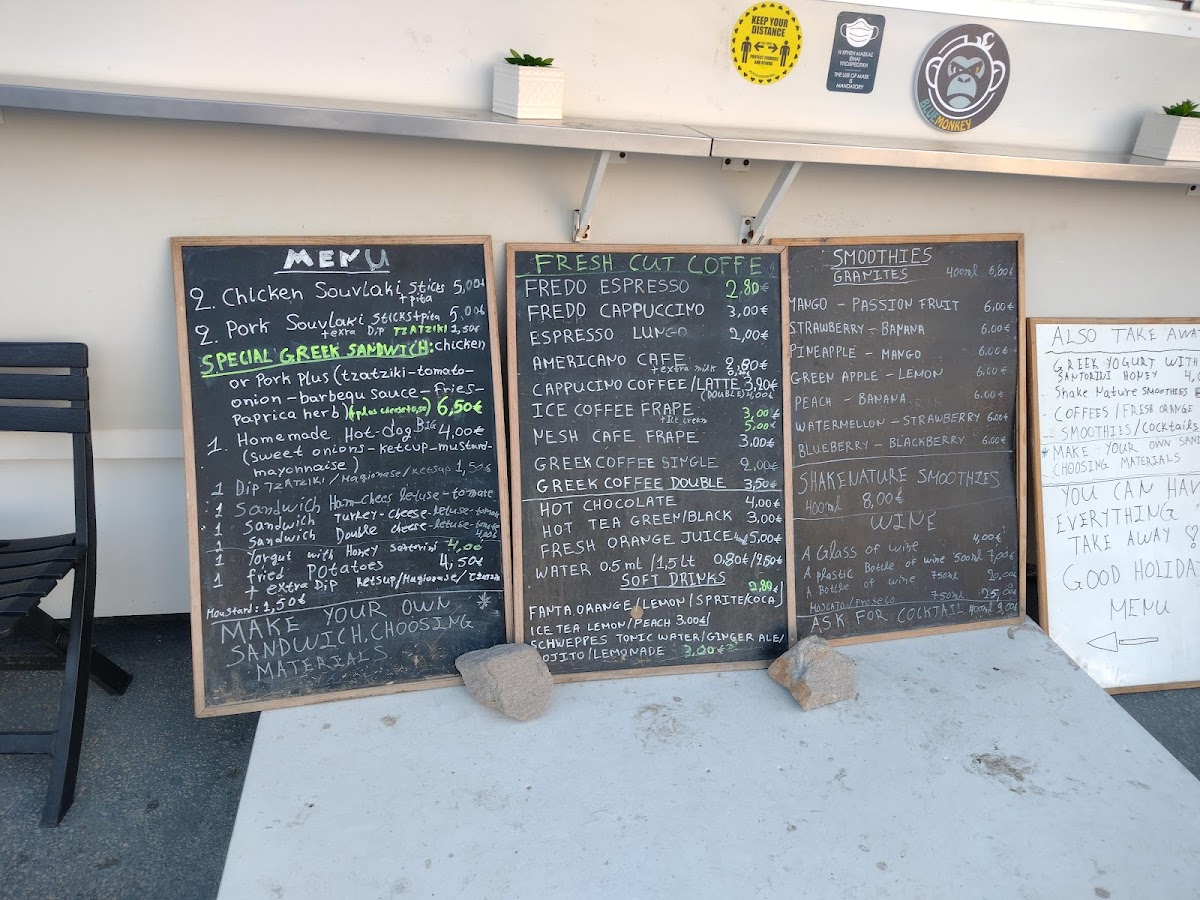 KEEP YOUR
DISTANCE
PROTECT YOURSELF
AND OTHERS
Η ΧΡΗΣΗ ΜΑΣΚΑΣ
ΕΙΝΑΙ
ΥΠΟΧΡΕΩΤΙΚΗ
THE USE OF MASK IS
MANDATORY
BLUEMONKEY
MENU
2. Chicken Souvlaki Sticks 5,00€
+pita
2. Pork Souvlaki Sticks+pita 5,00€
+extra Dip TZATZIKI 1,50€
SPECIAL GREEK SANDWICH: chicken
or Pork Plus (tzatziki-tomato-
onion-barbequ sauce-Fries-
Paprica herb) (+plus cheese+0,50) 6,50€
1. Homemade Hot-dog BIG 4,00€
(sweet onions-ketcup-mustard-
mayonnaise)
1 Dip TZATZIKI/Magionase/ketsup 1,50€
1 Sandwich Ham-chees letuse-tomate
1 Sandwich Turkey-cheese-letuse-tomate
1 Sandwich Double cheese-letuse-tomate
4,00€
1 Yorgut with Honey 4,00
1 fried Potatoes 4,50€
+ extra Dip Ketsup/Magionase/
Moustard: 1,50€
MAKE YOUR OWN
SANDWICH, CHOOSING
MATERIALS
FRESH CUT COFFE
FREDO ESPRESSO 2,80€
FREDO CAPPUCCINO 3,00€
ESPRESSO LUNGO 2,00€
AMERICANO CAFE 2,80€
+extra milk
CAPPUCINO COFFEE/LATTE 3,20€
(DOUBLE)
ICE COFFEE FRAPE 3,00€
+Ice cream 5,00€
NESH CAFE FRAPE 3,00€
GREEK COFFEE SINGLE 2,00€
GREEK COFFEE DOUBLE 3,50€
HOT CHOCOLATE 4,00€
HOT TEA GREEN/BLACK 3,00€
FRESH ORANGE JUICE 5,00€
WATER 0,5 ml/1,5 Lt 0,80€/2,50€
SOFT DRINKS
2,80€
FANTA ORANGE/LEMON/SPRITE/COCA)
ICE TEA LEMON/PEACH 3.00€/
SCHWEPPES TONIC WATER/GINGER ALE/
MOJITO/LEMONADE 3,00€
SMOOTHIES
GRANITES 400ml 6,00€
MANGO - PASSION FRUIT 6.00€
STRAWBERRY - BANANA 6.00€
PINEAPPLE - MANGO 6.00€
GREEN APPLE - LEMON 6.00€
PEACH - BANANA 6.00€
WATERMELLON - STRAWBERRY 6.00€
BLUEBERRY - BLACKBERRY 6.00€
SHAKE NATURE SMOOTHIES
400ml 8,00€
WINE
A Glass of wine 4,00€
A plastic Bottle of wine 500ml 7,00€
A Bottle of wine 750ml 20,00€
MOSCATO/PROSECO 750ml 25,00€
ASK FOR COCKTAIL 400ml 9,00€
ALSO TAKE AWAY
GREEK YOGURT WITH
SANTORINI HONEY
Shake Nature SMOOTHIES
- COFFEES/FRESH ORANGE
- SMOOTHIES/COCKTAILS
* MAKE YOUR OWN
CHOOSING MATERIALS
YOU CAN HAV
EVERYTHING
TAKE AWAY
GOOD HOLIDA
MENU